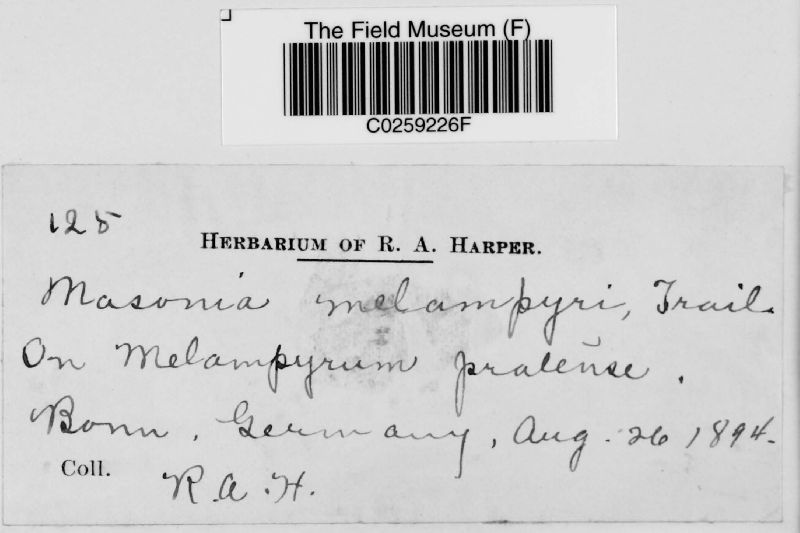 The Field Museum (F)
C0259226F
125
HERBARIUM OF R. A. HARPER.
Masonia melampyri, Trail.
On Melampyrum pratense.
Bonn, Germany, Aug. 26 1894.
Coll. R. A. H.